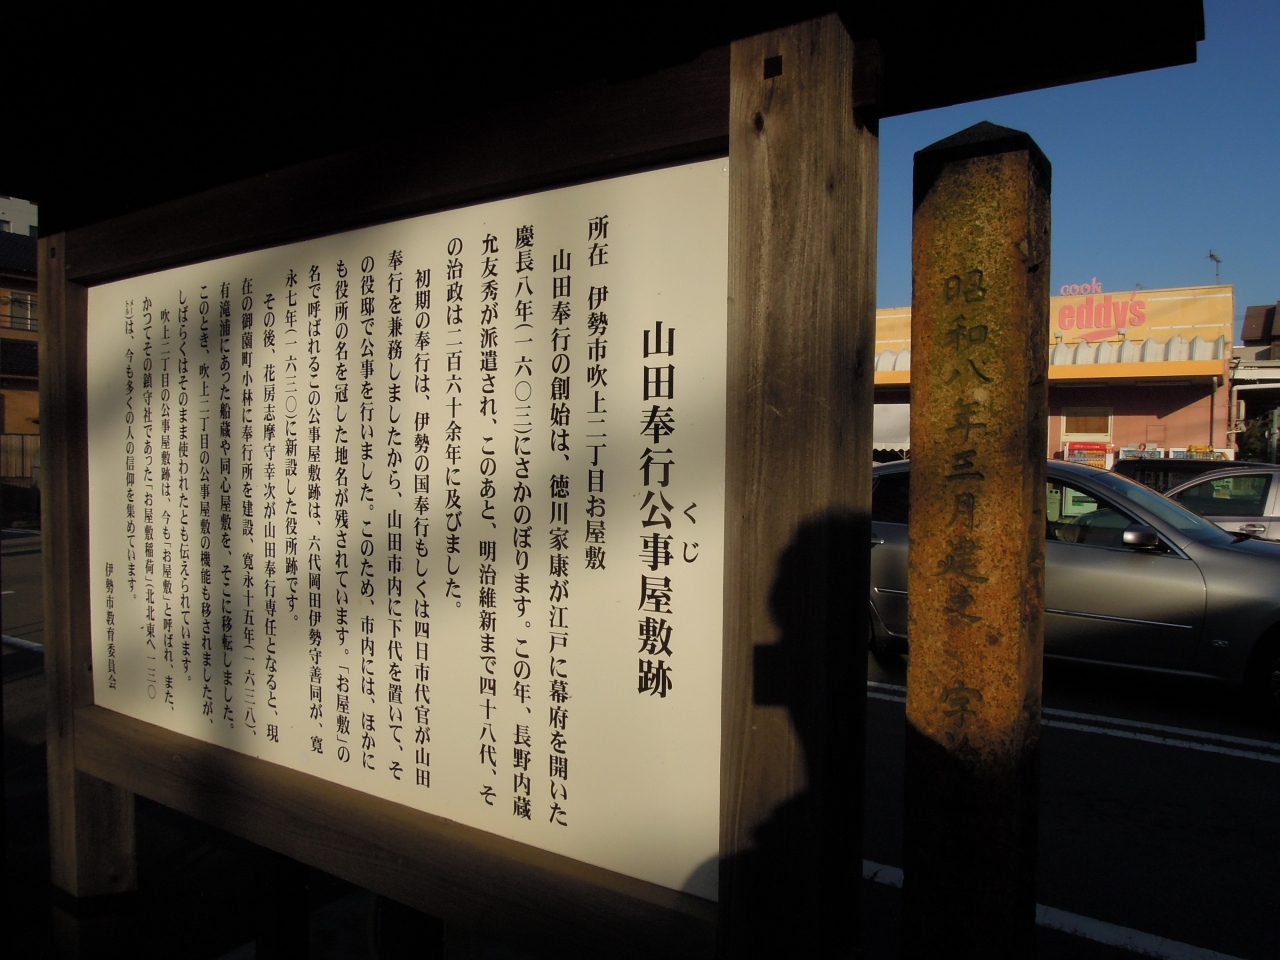 山田奉行公事屋敷跡
くじ
所在 伊勢市吹上二丁目お屋敷
山田奉行の創始は、徳川家康が江戸に幕府を開いた
慶長八年(一六〇三)にさかのぼります。この年、長野内蔵
允友秀が派遣され、このあと、明治維新まで四十八代、そ
の治政は二百六十余年に及びました。
初期の奉行は、伊勢の国奉行もしくは四日市代官が山田
奉行を兼務しましたから、山田市内に下代を置いて、そ
の役邸で公事を行いました。このため、市内には、ほかに
も役所の名を冠した地名が残されています。「お屋敷」の
名で呼ばれるこの公事屋敷跡は、六代岡田伊勢守善同が、寛
永七年(一六三〇)に新設した役所跡です。
その後、花房志摩守幸次が山田奉行専任となると、現
在の御薗町小林に奉行所を建設、寛永十五年(一六三八)、
有滝浦にあった船蔵や同心屋敷を、そこに移転しました。
このとき、吹上二丁目の公事屋敷の機能も移されましたが、
しばらくはそのまま使われたとも伝えられています。
吹上二丁目の公事屋敷跡は、今も「お屋敷」と呼ばれ、また、
かつてその鎮守社であった「お屋敷稲荷」(北北東へ一三〇
は、今も多くの人の信仰を集めています。
伊勢市教育委員会
昭和八年三月建之
cook
eddy's